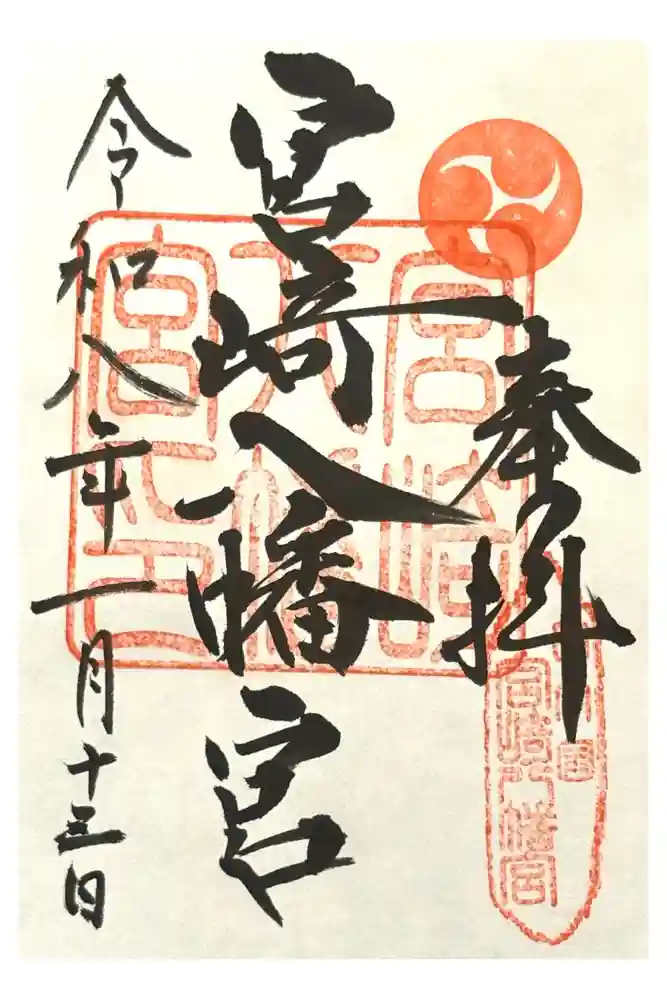 奉拝
宮崎八幡宮
令和八年一月十三日
宮崎
八幡
宮之印
宮崎八幡宮